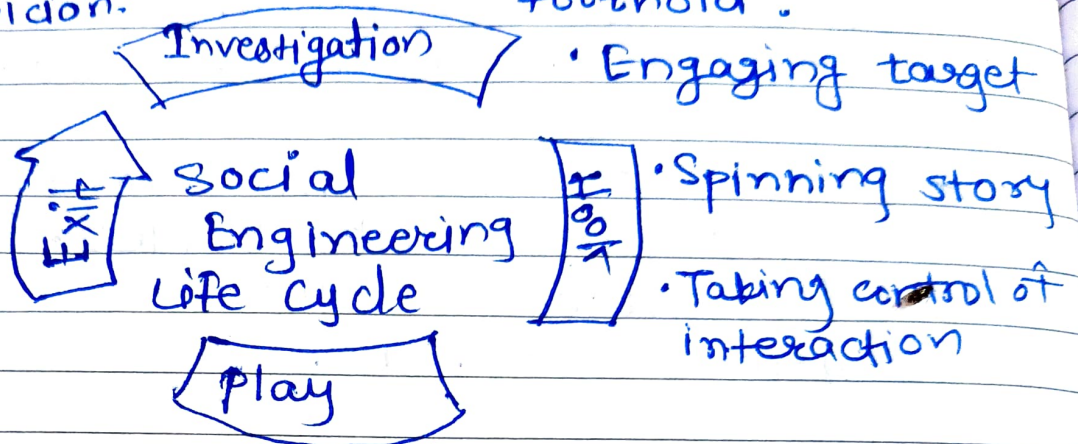 Investigation
• Engaging target
Exit
Social
Engineering
Life cycle
Hook
• Spinning story
• Taking control of
interaction
Play